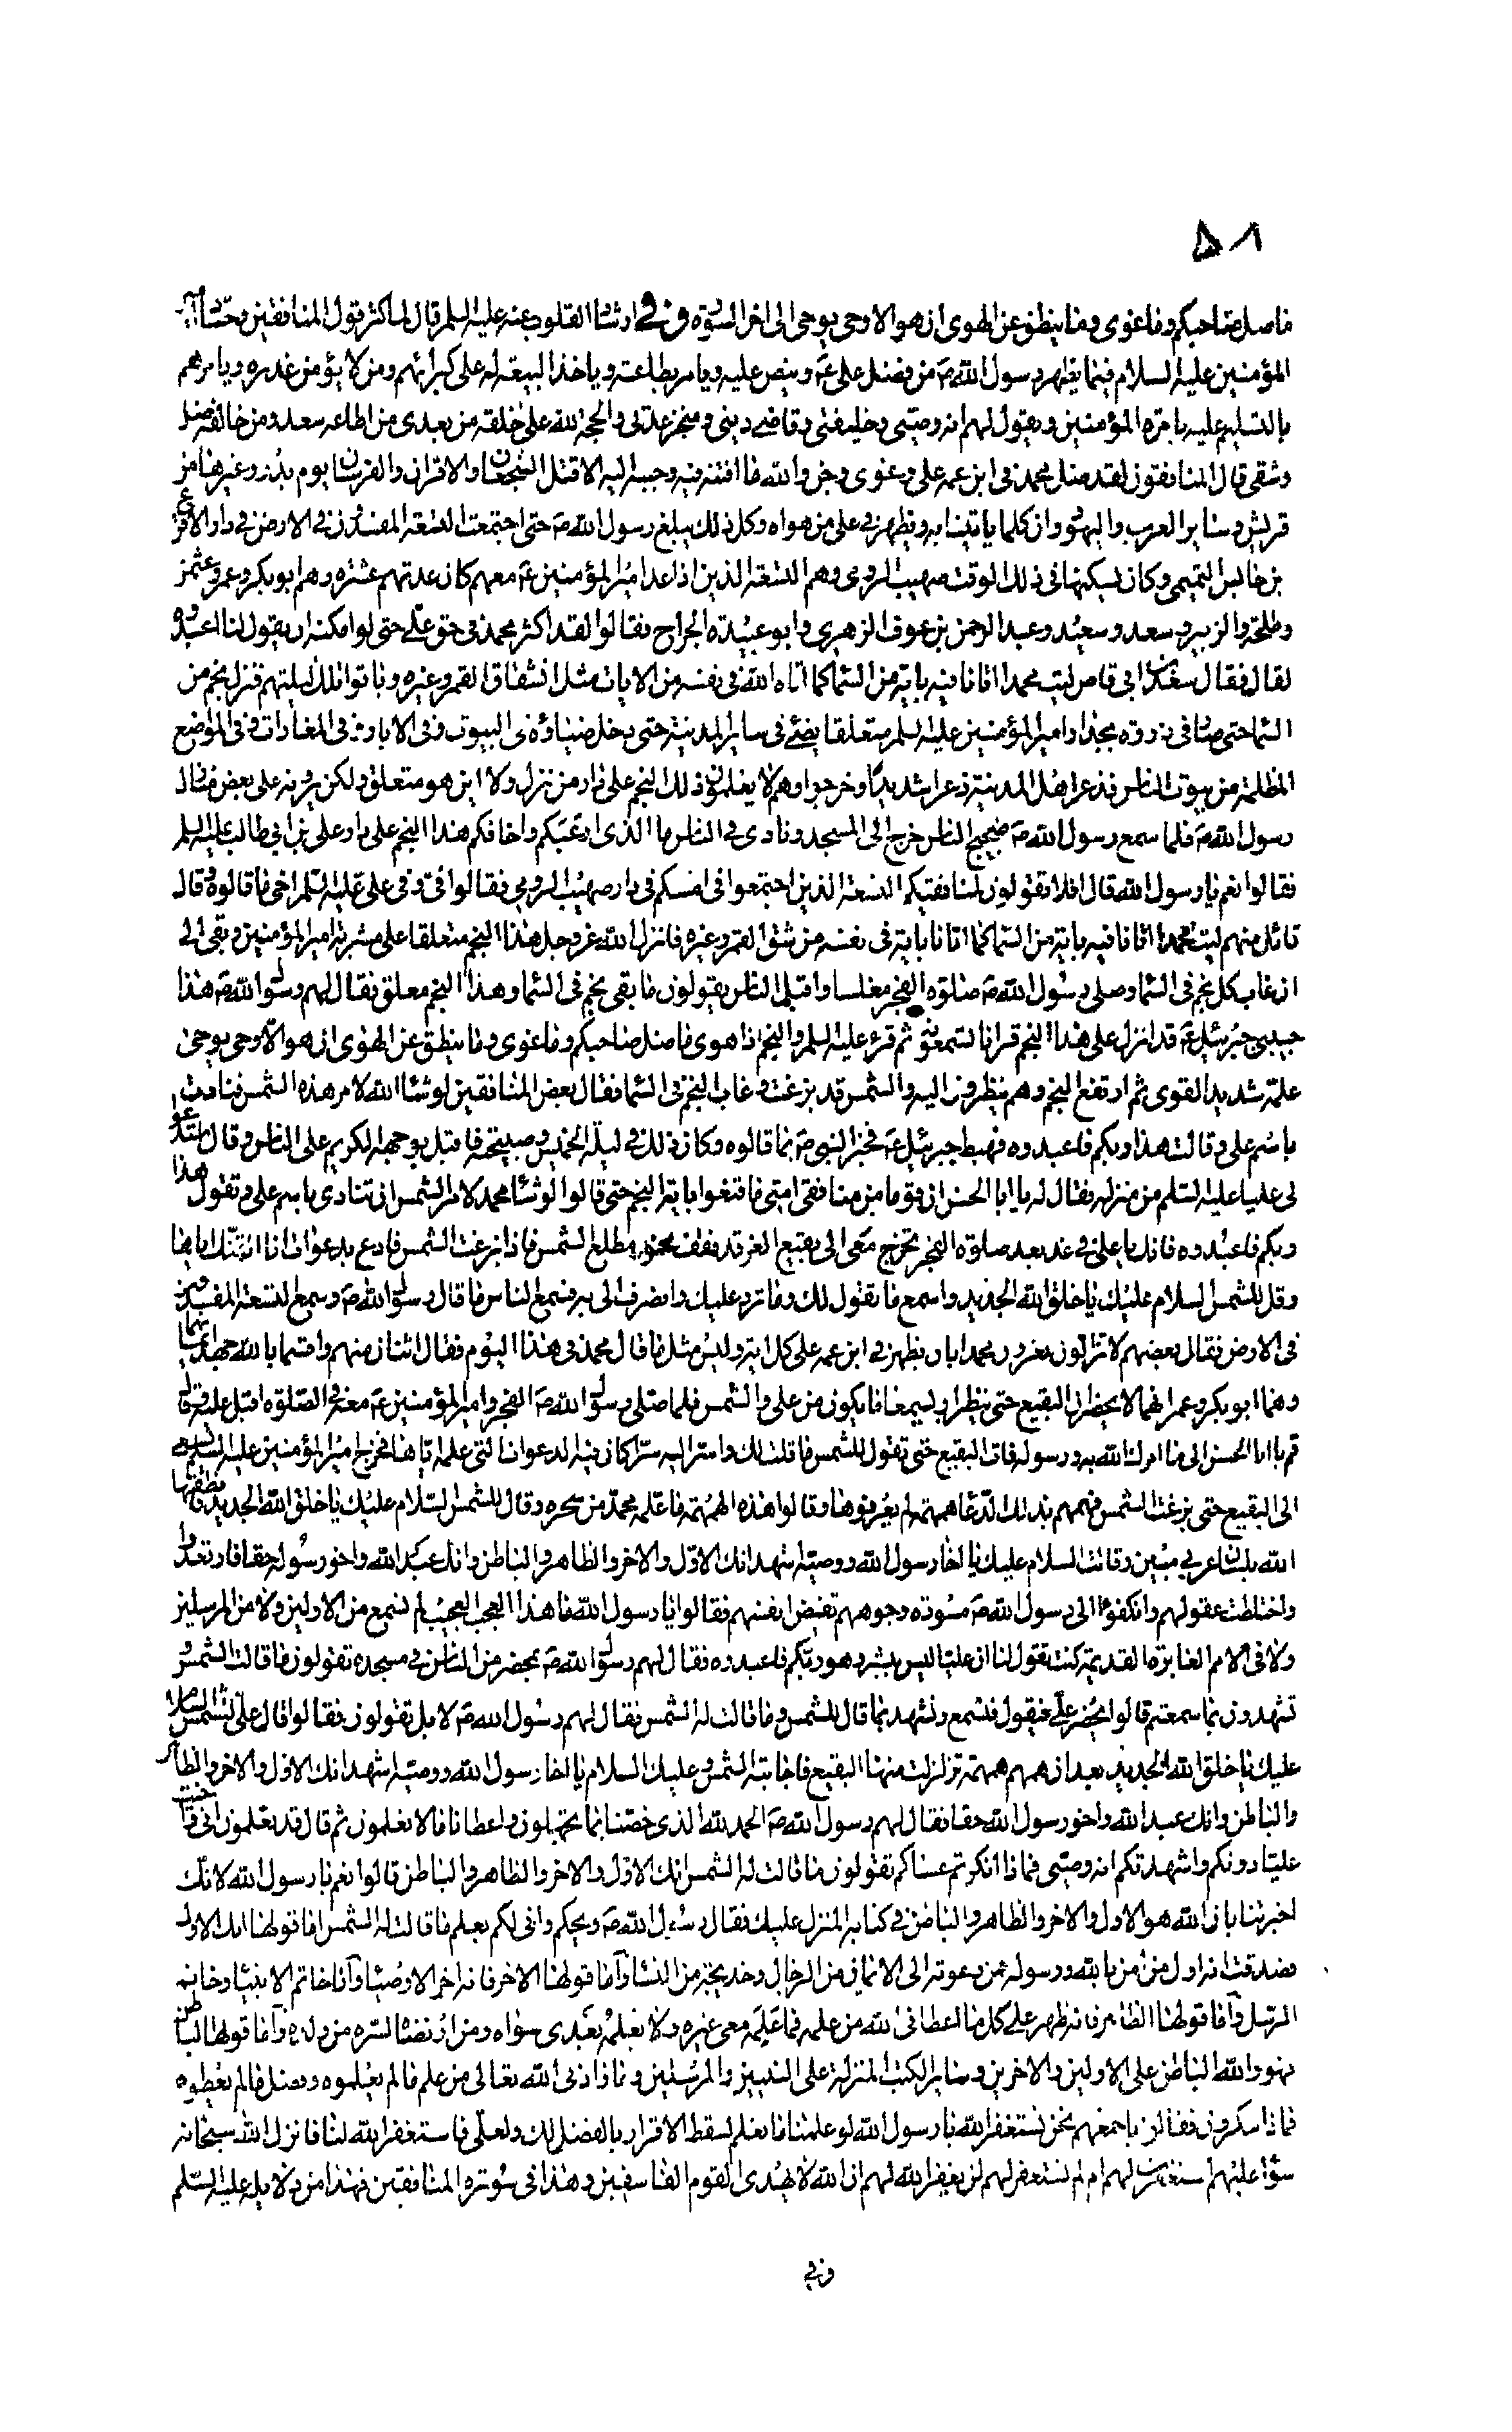 ٥٨
ما ضل صاحبكم وما غوى وما ينطق عن الهوى ان هو الا وحى يوحى الى اخر السورة وفى ارشاد القلوب عنه عليه السلم قال لما كثر قول المنافقين وحساد امير
المؤمنين عليه السلام فيما يظهر رسول الله ص من فضل على ع وينص عليه ويامر بطاعته وياخذ البيعة له على كبرائهم ومن لا يؤمن غدره ويامرهم
بالتسليم عليه بامرة المؤمنين ويقول لهم انه وصيى وخليفتى وقاضى دينى ومنجز عدتى والحجة لله على خلقه من بعدى من اطاعه سعد ومن خالفه ضل
وشقى قال المنافقون لقد ضل محمد فى ابن عمه على وغوى وجن والله ما افتنه فيه وحببه اليه الا قتل الشجعان والاقران والفرسان يوم بدر وغيرها من
قريش وساير العرب واليهود وان كلما ياتينا به ويظهر فى على من هواه وكل ذلك يبلغ رسول الله ص حتى اجتمعت التسعة المفسدون فى الارض فى دار الاقرع
بن حابس التميمى وكان يسكنها فى ذلك الوقت صهيب الرومى وهم التسعة الذين اذا عد امير المؤمنين ع معهم كان عدتهم عشرة وهم ابو بكر وعمر وعثمن
وطلحة والزبير وسعد وسعيد وعبد الرحمن بن عوف الزهرى وابو عبيدة الجراح فقالوا لقد اكثر محمد فى حق على حتى لو امكنه ان يقول لنا اعبدوه
لقال فقال سعد بن ابى وقاص ليت محمدا اتانا فيه باية من السماء كما اتاه الله فى نفسه من الايات مثل انشقاق القمر وغيره وباتوا تلك ليلتهم فنزل نجم من
السماء حتى صار فى ذروة بجدار امير المؤمنين عليه السلم متعلقا يضئ فى ساير المدينة حتى دخل ضياؤه فى البيوت وفى الابار وفى المغارات وفى المواضع
المظلمة من بيوت الناس فذعر اهل المدينة ذعرا شديدا وخرجوا وهم لا يعلمون ذلك النجم على دار من نزل ولا اين هو متعلق ولكن يرونه على بعض منازل
رسول الله ص فلما سمع رسول الله ص ضجيج الناس خرج الى المسجد ونادى فى الناس ما الذى ارعبكم واخافكم هذا النجم على دار على بن ابى طالب عليه السلم
فقالوا نعم يا رسول الله قال افلا تقولون لمنافقيكم التسعة الذين اجتمعوا فى امسكم فى دار صهيب الرومى فقالوا فى وفى على عليه السلم اخى ما قالوه وقال
قائل منهم ليت محمدا اتانا فيه باية من السماء كما اتانا باية فى نفسه من شق القمر وغيره فانزل الله عز وجل هذا النجم متعلقا على مشربة امير المؤمنين وبقى الى
ان غاب كل نجم فى السماء وصلى رسول الله ص صلوة الفجر مغلسا واقبل الناس يقولون ما بقى نجم فى السماء وهذا النجم معلق فقال لهم رسول الله ص هذا
حبيبى جبرئيل ع قد انزل على هذا النجم قرانا تسمعونه ثم قرء عليه السلم والنجم اذا هوى ما ضل صاحبكم وما غوى وما ينطق عن الهوى ان هو الا وحى يوحى
علمه شديد القوى ثم ارتفع النجم وهم ينظرون اليه والشمس قد بزغت وغاب النجم فى السماء فقال بعض المنافقين لو شاء الله لامر هذه الشمس فنادت
باسم على وقالت هذا ربكم فاعبدوه فهبط جبرئيل ع فخبر النبى ص بما قالوه وكان ذلك فى ليلة الخميس وصبيحته فاقبل بوجهه الكريم على الناس وقال استدعوا
لى عليا عليه السلم من منزله فقال له يا ابا الحسن ان قوما من منافقى امتى ما قنعوا باية النجم حتى قالوا لو شاء محمد لامر الشمس ان تنادى باسم على وتقول هذا
ربكم فاعبدوه فانك يا على فى غد بعد صلوة الفجر تخرج معى الى بقيع الغرقد فقف نحو مطلع الشمس فاذا بزغت الشمس فادع بدعوات انا القنك اياها
وقل للشمس السلام عليك يا خلق الله الجديد واسمع ما تقول لك وما ترد عليك وانصرف الى به فسمع الناس ما قال رسول الله ص وسمع التسعة المفسدون
فى الارض فقال بعضهم لا تزالون تغرون محمدا بان يظهر فى ابن عمه على كل اية وليس مثل ما قال محمد فى هذا اليوم فقال اثنان منهم واقسما بالله جهد ايمانهما
وهما ابو بكر وعمر انهما لا بد يحضران البقيع حتى ينظرا ويسمعا ما يكون من على والشمس فلما صلى رسول الله ص الفجر وامير المؤمنين ع معه فى الصلوة اقبل عليه وقال
قم يا ابا الحسن الى ما امرك الله به ورسوله فات البقيع حتى تقول للشمس ما قلت لك واسر اليه سرا كان فيه الدعوات التى علمه اياها فخرج امير المؤمنين عليه السلم
الى البقيع حتى بزغت الشمس فهمهم بذلك الدعاء همهمة لم يعرفوها وقالوا هذه الهمهمة ما علمه محمد من سحره وقال للشمس السلام عليك يا خلق الله الجديد فانطقها
الله بلسان عربى مبين وقالت السلام عليك يا اخا رسول الله ووصيه اشهد انك الاول والاخر والظاهر والباطن وانك عبد الله واخو رسوله حقا فارتعدوا
واختلطت عقولهم وانكفوا الى رسول الله ص مسودة وجوههم تفيض انفسهم فقالوا يا رسول الله ما هذا العجب العجيب لم نسمع من الاولين ولا من المرسلين
ولا فى الامم الغابرة القديمة كنت تقول لنا ان عليا ليس ببشر وهو ربكم فاعبدوه فقال لهم رسول الله ص بمحضر من الناس فى مسجده تقولون ما قالت الشمس و
تشهدون بما سمعتم قالوا يحضر على فيقول فنسمع ونشهد بما قال للشمس وما قالت له الشمس فقال لهم رسول الله ص لا بل تقولون فقالوا قال على للشمس السلام
عليك يا خلق الله الجديد بعد ان همهم همهمة تزلزلت منها البقيع فاجابته الشمس وعليك السلام يا اخا رسول الله ووصيه اشهد انك الاول والاخر والظاهر
والباطن وانك عبد الله واخو رسول الله حقا فقال لهم رسول الله ص الحمد لله الذى خصنا بما تجهلون واعطانا ما لا تعلمون ثم قال قد تعلمون انى واخيت
عليا دونكم واشهدتكم انه وصيى فماذا انكرتم عساكم تقولون ما قالت له الشمس انك الاول والاخر والظاهر والباطن قالوا نعم يا رسول الله لانك
اخبرتنا بان الله هو الاول والاخر والظاهر والباطن فى كتابه المنزل عليك فقال رسول الله ص ويحكم وانى لكم بعلم ما قالت له الشمس اما قولها انك الاول
فصدقت انه اول من امن بالله ورسوله ممن دعوته الى الايمان من الرجال وخديجة من النساء واما قولها الاخر فانه اخر الاوصياء وانا خاتم الانبياء وخاتم
الرسل واما قولها الظاهر فانه ظهر على كل ما اعطانى الله من علمه فما علمه معى غيره ولا يعلمه بعدى سواه ومن ارتضاه لسره من ولده واما قولها الباطن
فهو والله الباطن على الاولين والاخرين وساير الكتب المنزلة على النبيين والمرسلين وما زادنى الله تعالى من علم ما لم يعلموه وفضل ما لم يعطوه
فماذا تنكرون فقالوا باجمعهم نحن نستغفر الله يا رسول الله لو علمنا ما تعلم لسقط الاقرار بالفضل لك ولعلى فاستغفر الله لنا فانزل الله سبحانه
سواء عليهم استغفرت لهم ام لم تستغفر لهم لن يغفر الله لهم ان الله لا يهدى القوم الفاسقين وهذا فى سورة المنافقين فهذا من دلايله عليه السلم
وفى